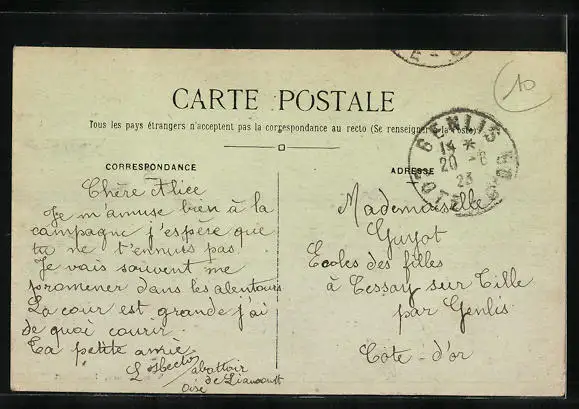 10
CARTE POSTALE
Tous les pays étrangers n'acceptent pas la correspondance au recto (Se renseigner à la Poste)
CORRESPONDANCE
ADRESSE
GENLIS
14 *
20 - 6
23
CÔTE D'OR
Chère Alice
Je m'amuse bien à la
campagne j'espère que
tu ne t'ennuis pas.
Je vais souvent me
promener dans les alentours
La cour est grande j'ai
de quoi courir.
Ta petite amie
abattoir
de Liancourt
Oise
Mademoiselle
Guyot
Ecoles des filles
à Cessay sur Tille
par Genlis.
Côte-d'or